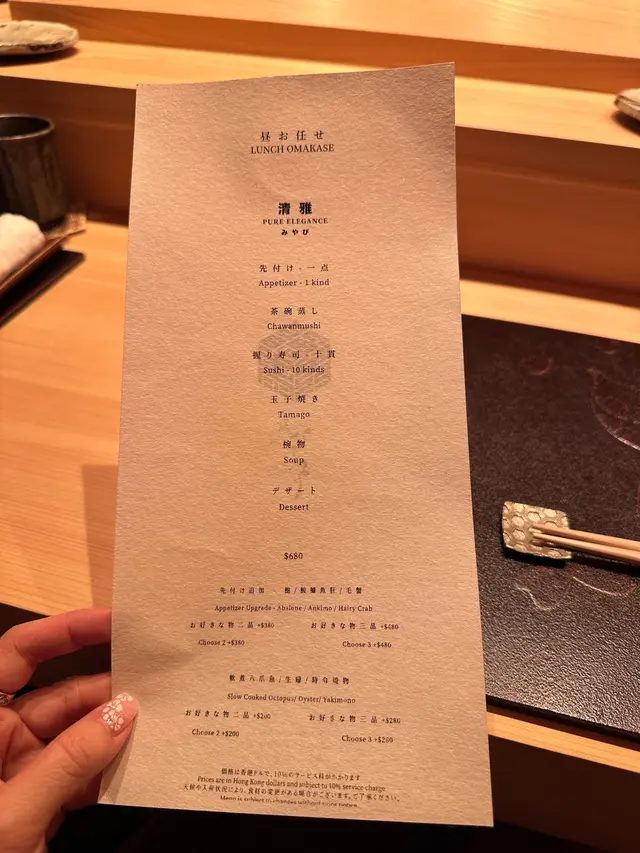 昼お任せ
LUNCH OMAKASE
清雅
PURE ELEGANCE
みやび
先付け・一点
Appetizer - 1 kind
茶碗蒸し
Chawanmushi
握り寿司・十貫
Sushi - 10 kinds
玉子焼き
Tamago
椀物
Soup
デザート
Dessert
$680
先付け追加 鮑/鮟鱇魚肝/毛蟹
Appetizer Upgrade - Abalone / Ankimo / Hairy Crab
お好きな物二品 +$380 お好きな物三品 +$480
Choose 2 +$380 Choose 3 +$480
軟煮八爪魚/生蠔/時令焼物
Slow Cooked Octopus/ Oyster/ Yakimono
お好きな物二品 +$200 お好きな物三品 +$280
Choose 2 +$200 Choose 3 +$280
価格は香港ドルで、10%のサービス料がかかります
Prices are in Hong Kong dollars and subject to 10% service charge
天候や入荷状況により、食材の変更がある場合がございます。ご了承ください。
Menu is subject to changes without prior notice.